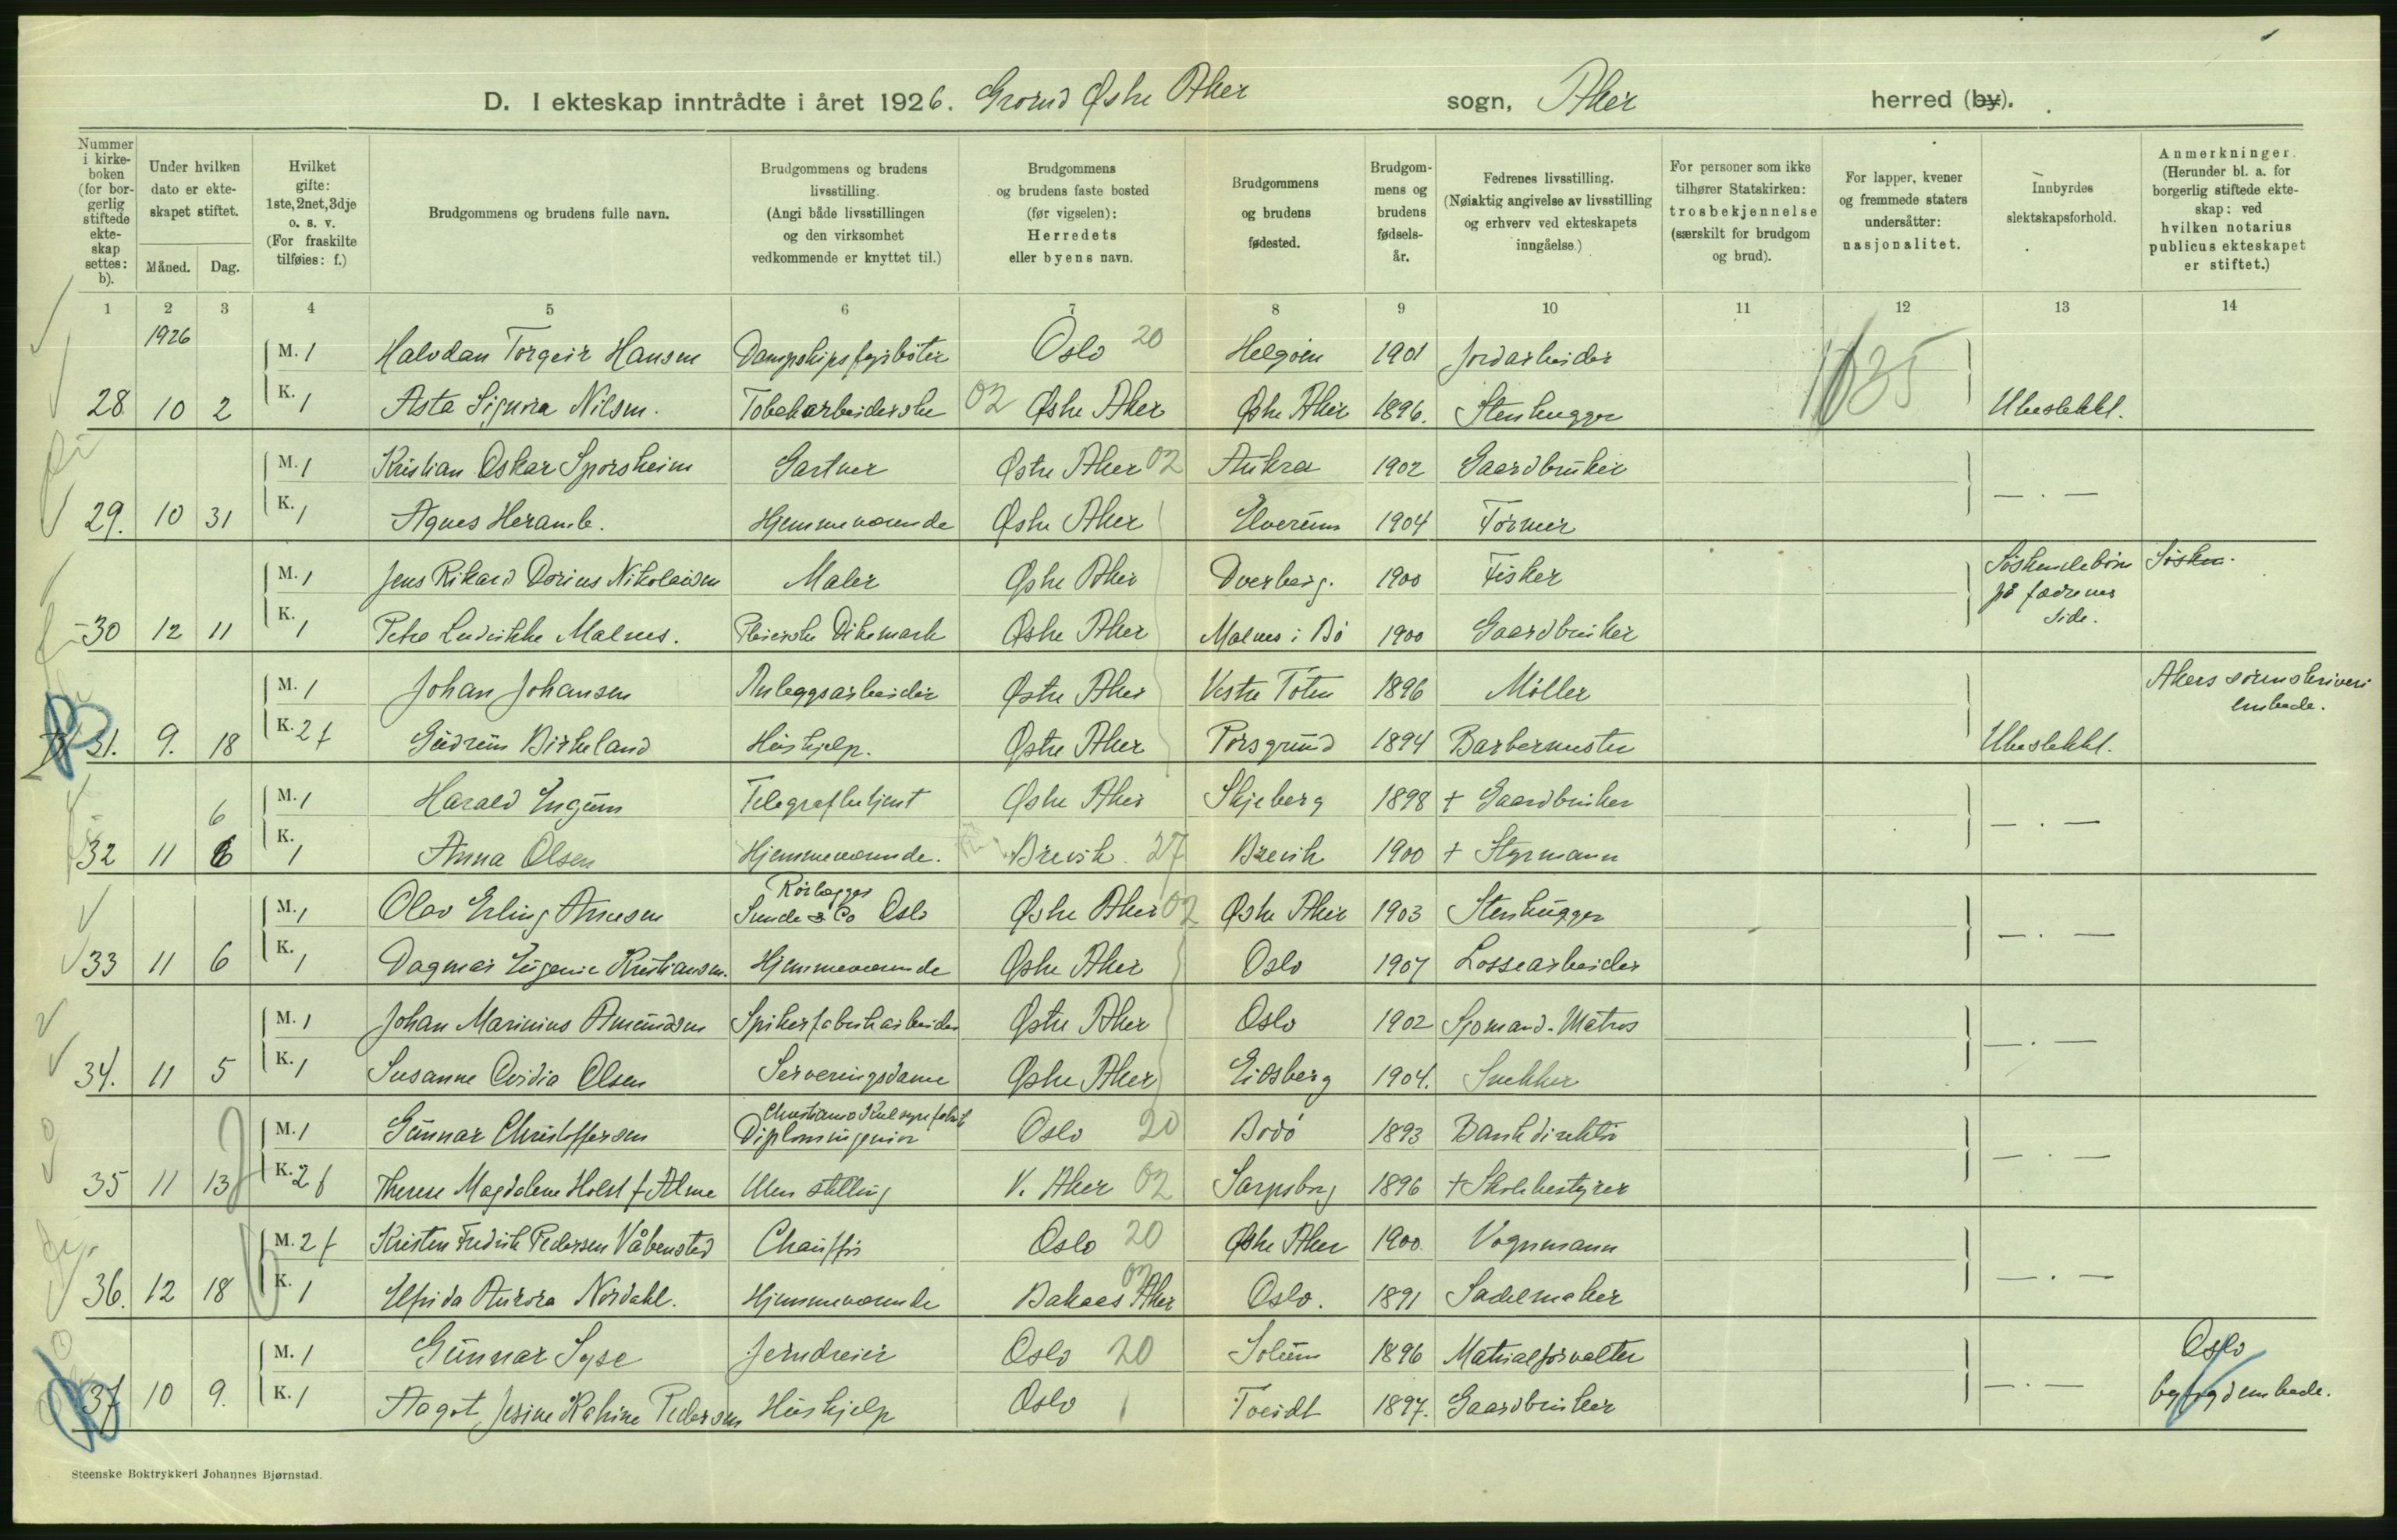 D. I ekteskap inntrådte i året 1926. Grorud Østre Aker sogn, Aker herred (by).
Nummer i kirkeboken (for borgerlig stiftede ekteskap settes: b).
Under hvilken dato er ekteskapet stiftet.
Måned. Dag.
Hvilket gifte: 1ste, 2net, 3dje o. s. v. (For fraskilte tilføies: f.)
Brudgommens og brudens fulle navn.
Brudgommens og brudens livsstilling. (Angi både livsstillingen og den virksomhet vedkommende er knyttet til.)
Brudgommens og brudens faste bosted (før vigselen): Herredets eller byens navn.
Brudgommens og brudens fødested.
Brudgommens og brudens fødselsår.
Fedrenes livsstilling. (Nøiaktig angivelse av livsstilling og erhverv ved ekteskapets inngåelse.)
For personer som ikke tilhører Statskirken: trosbekjennelse (særskilt for brudgom og brud).
For lapper, kvener og fremmede staters undersåtter: nasjonalitet.
Innbyrdes slektskapsforhold.
Anmerkninger. (Herunder bl. a. for borgerlig stiftede ekteskap: ved hvilken notarius publicus ekteskapet er stiftet.)
1 2 3 4 5 6 7 8 9 10 11 12 13 14
1926
M. 1 Halvdan Torgeir Hansen Dampskipsfyrbøter Oslo 20 Helgøen 1901 Jordarbeider 1635
28 10 2 K. 1 Asta Signora Nilsen. Tobakarbeiderske 02 Østre Aker Østre Aker 1896. Stenhugger Ubeslektet.
M. 1 Kristian Oskar Sporsheim Gartner Østre Aker 02 Aukra 1902 Gaardbruker
29. 10 31 K. 1 Agnes Heramb. Hjemmeværende Østre Aker Elverum 1904 Former — . —
M. 1 Jens Rikard Dorius Nikolaisen Maler Østre Aker Dverberg. 1900 Fisker Søskendebørn på fædrenes side. Søsken.
30 12 11 K. 1 Petra Ludvikke Malnes. Pleierske Dikemark Østre Aker Malnes i Bø 1900 Gaardbruker
M. 1 Johan Johansen Anleggsarbeider Østre Aker Vestre Toten 1896 Møller Akers sorenskriverembede.
31. 9. 18 K. 2 f Gudrun Birkeland Hushjelp. Østre Aker Porsgrund 1894 Barbermester Ubeslektet.
6 M. 1 Harald Ingum Telegrafbetjent Østre Aker Skjeberg 1898 + Gaardbruker
32 11 6 K. 1 Anna Olsen Hjemmeværende. Brevik 27 Brevik 1900 + Styrmann — . —
M. 1 Olav Erling Arnesen Rørlegger Sunde & Co Oslo Østre Aker 02 Østre Aker 1903 Stenhugger
33 11 6 K. 1 Dagmar Eugenie Kristiansen. Hjemmeværende Østre Aker Oslo 1907 Lossearbeider — . —
M. 1 Johan Marinius Amundsen Spikerfabrikarbeider Østre Aker Oslo 1902 Sjømand. Matros
34. 11 5 K. 1 Susanne Ovidia Olsen Serveringsdame Østre Aker Eidsberg 1904. Snekker — . —
M. 1 Gunnar Christoffersen Christiania Kulsyrefabrik Diplomingeniør Oslo 20 Bodø 1893 Bankdirektør
35 11 13 K. 2 f Therese Magdalene Holst f. Alme Uten stilling V. Aker 02 Sarpsborg 1896 + Skolebestyrer — . —
M. 2 f Kristen Fredrik Pedersen Våbensted Chauffør Oslo 20 Østre Aker 1900 Vognmann
36. 12 18 K. 1 Elfrida Aurora Nordahl. Hjemmeværende Bakaas Aker 02 Oslo. 1891 Sadelmaker — . —
M. 1 Gunnar Syse Jerndreier Oslo 20 Solum 1896 Matrialforvalter Oslo byfogdembede.
37 10 9. K. 1 Aagot Jesine Katrine Pedersen Hushjelp Oslo Tveidt 1897. Gaardbruker — . —
Steenske Boktrykkeri Johannes Bjørnstad.